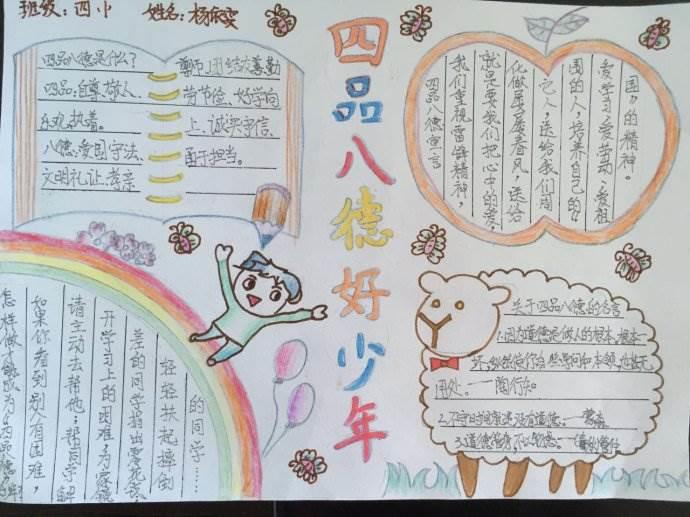 班级：四.1 姓名：杨
四品八德好少年
四品八德是什么？
四品：自尊敬人、
乐观执着。
八德：爱国守法、
文明礼让、孝亲
尊师、团结友善、勤
劳节俭、好学向
上、诚实守信、
勇于担当。
四品八德宣言
我们重视雷锋精神，
就是要我们把心中的爱，
化做屡屡春风，送给
它人，送给我们周
围的人，培养自己的
爱学习、爱劳动、爱祖
国的精神。
怎样做才能成为
如果你看到别人有困难，
请主动去帮他；帮同学解
开学习上的困难；为
差的同学指出
轻轻扶起摔倒
的同学……
关于四品八德的名言
1.因为道德是做人的根本，根本
坏，纵然你有些学问和本领，也无
用处。——陶行知
2.不守时间就是没有道德。——蒙森
3.道德